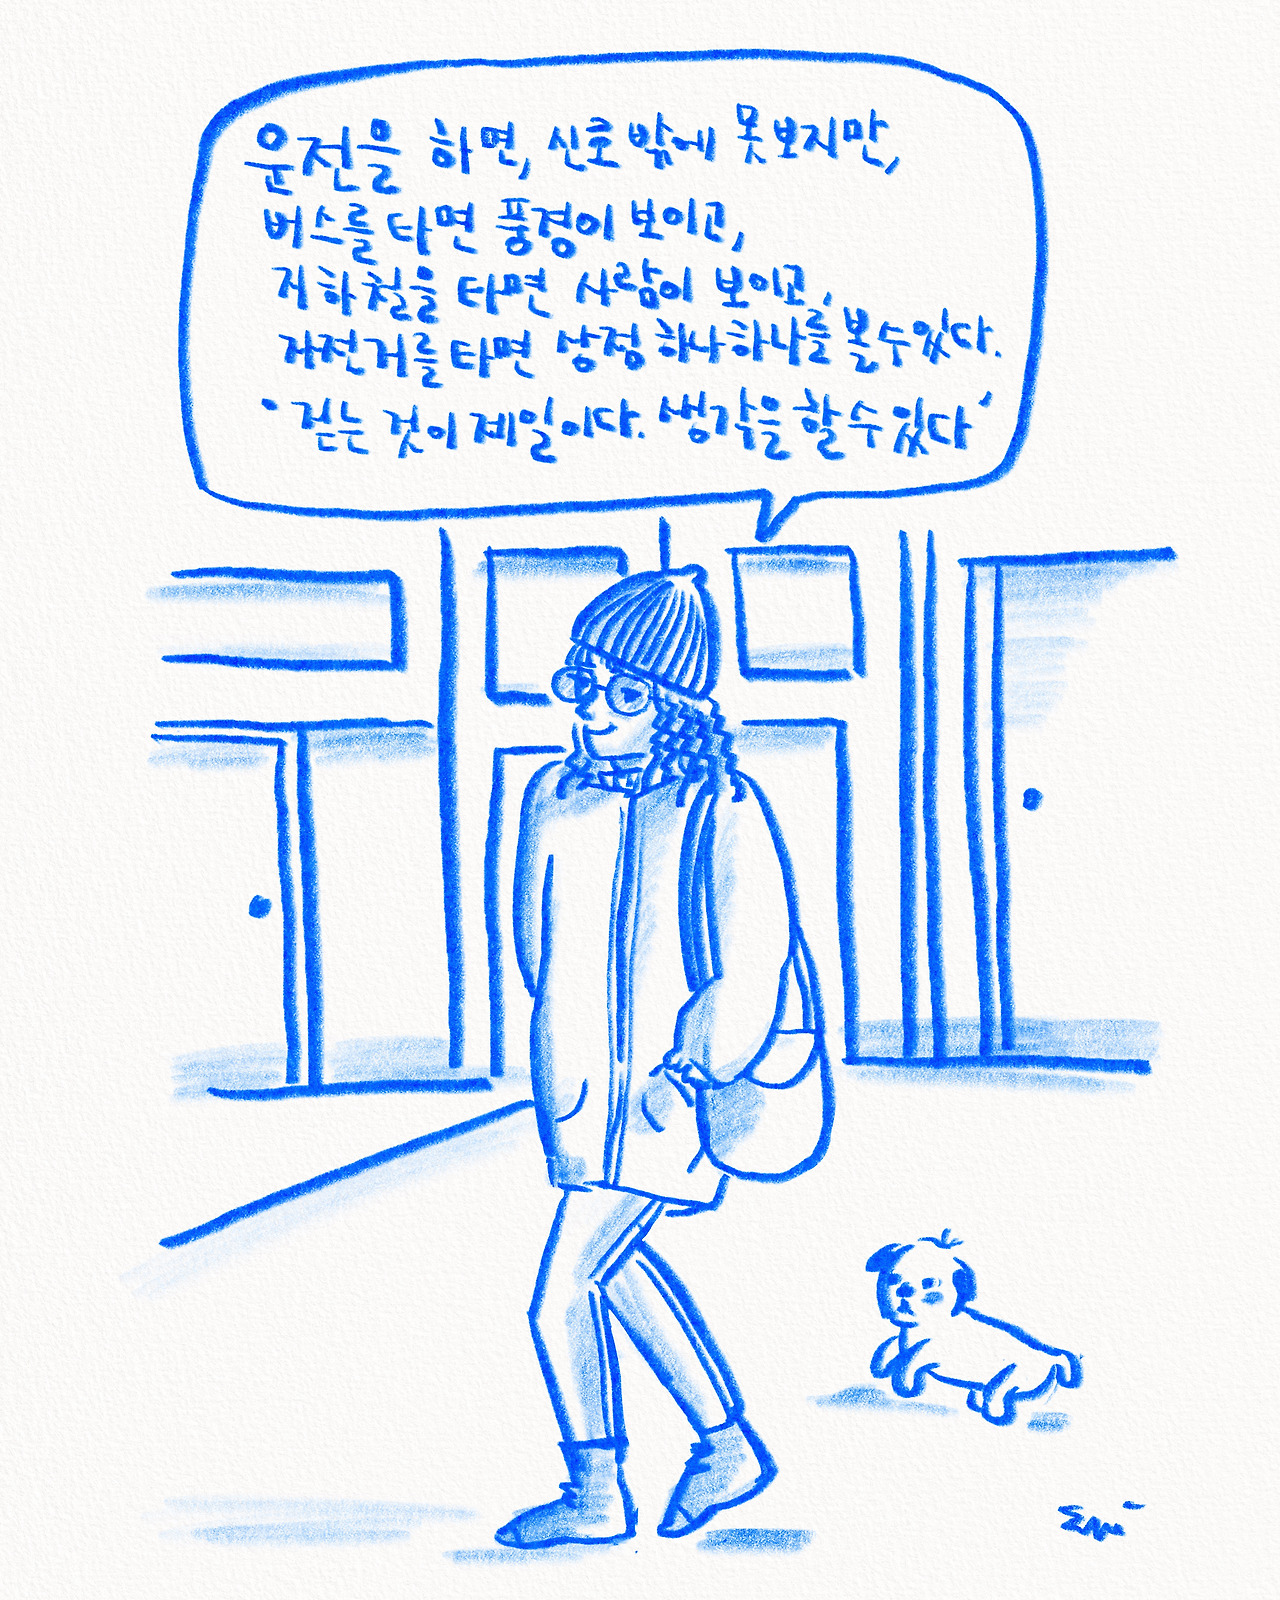 운전을 하면, 신호 밖에 못 보지만,
버스를 타면 풍경이 보이고,
지하철을 타면 사람이 보이고,
자전거를 타면 상점 하나하나를 볼 수 있다.
'걷는 것이 제일이다. 생각을 할 수 있다'